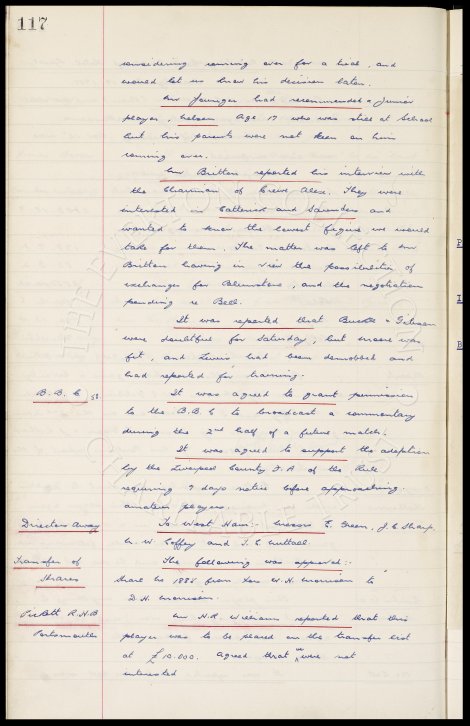 117
considering coming over for a trial, and
would let us know his decision later.
Mr Younger had recommended a Junior
player, Nelson. Age 17 who was still at School
but his parents were not keen on him
coming over.
Mr Britten reported his interview with
the Chairman of Crewe Alex. They were
interested in Catterick and Saunders and
wanted to know the lowest figure we would
take for them. The matter was left to Mr
Britten having in view the possibilities of
exchanges for Blunstone, and the negotiation
pending re Bell.
It was reported that Buckle &
were doubtful for Saturday, but Moore was
fit, and Lewis had been demobbed and
had reported for training.
B.B.C 58. It was agreed to grant permission
to the B.B.C to broadcast a commentary
during the 2nd half of a future match.
It was agreed to support the adoption
by the Liverpool County F.A of the Rule
requiring 7 days notice before approaching
amateur players.
Directors Away To West Ham: Messrs E. Green, J.C Sharp
W. Coffey and T.C Nuttall.
Transfer of The following was approved:-
Shares Share No 1885 from W.H. Morrison to
D.H. Morrison.
Pickett R.H.B Mr H.R. Williams reported that this
Portsmouth player was to be placed on the transfer list
at £10.000. Agreed that we were not
interested